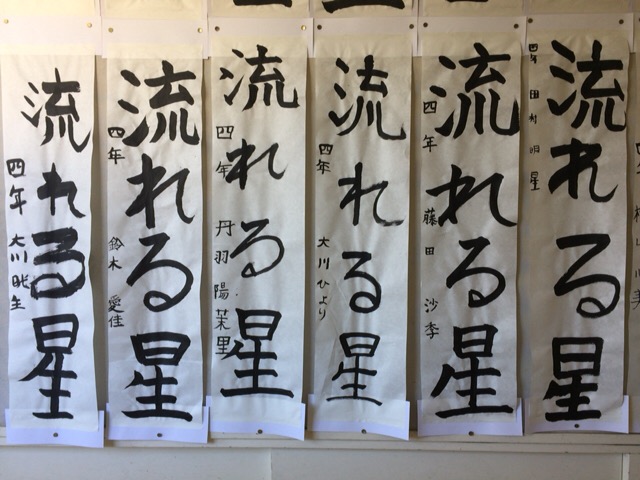 流れる星
四年 田村 明星
流れる星
四年 藤田 沙季
流れる星
四年 大川ひより
流れる星
四年 丹羽 陽茉里
流れる星
四年 鈴木 愛佳
流れる星
四年 大川